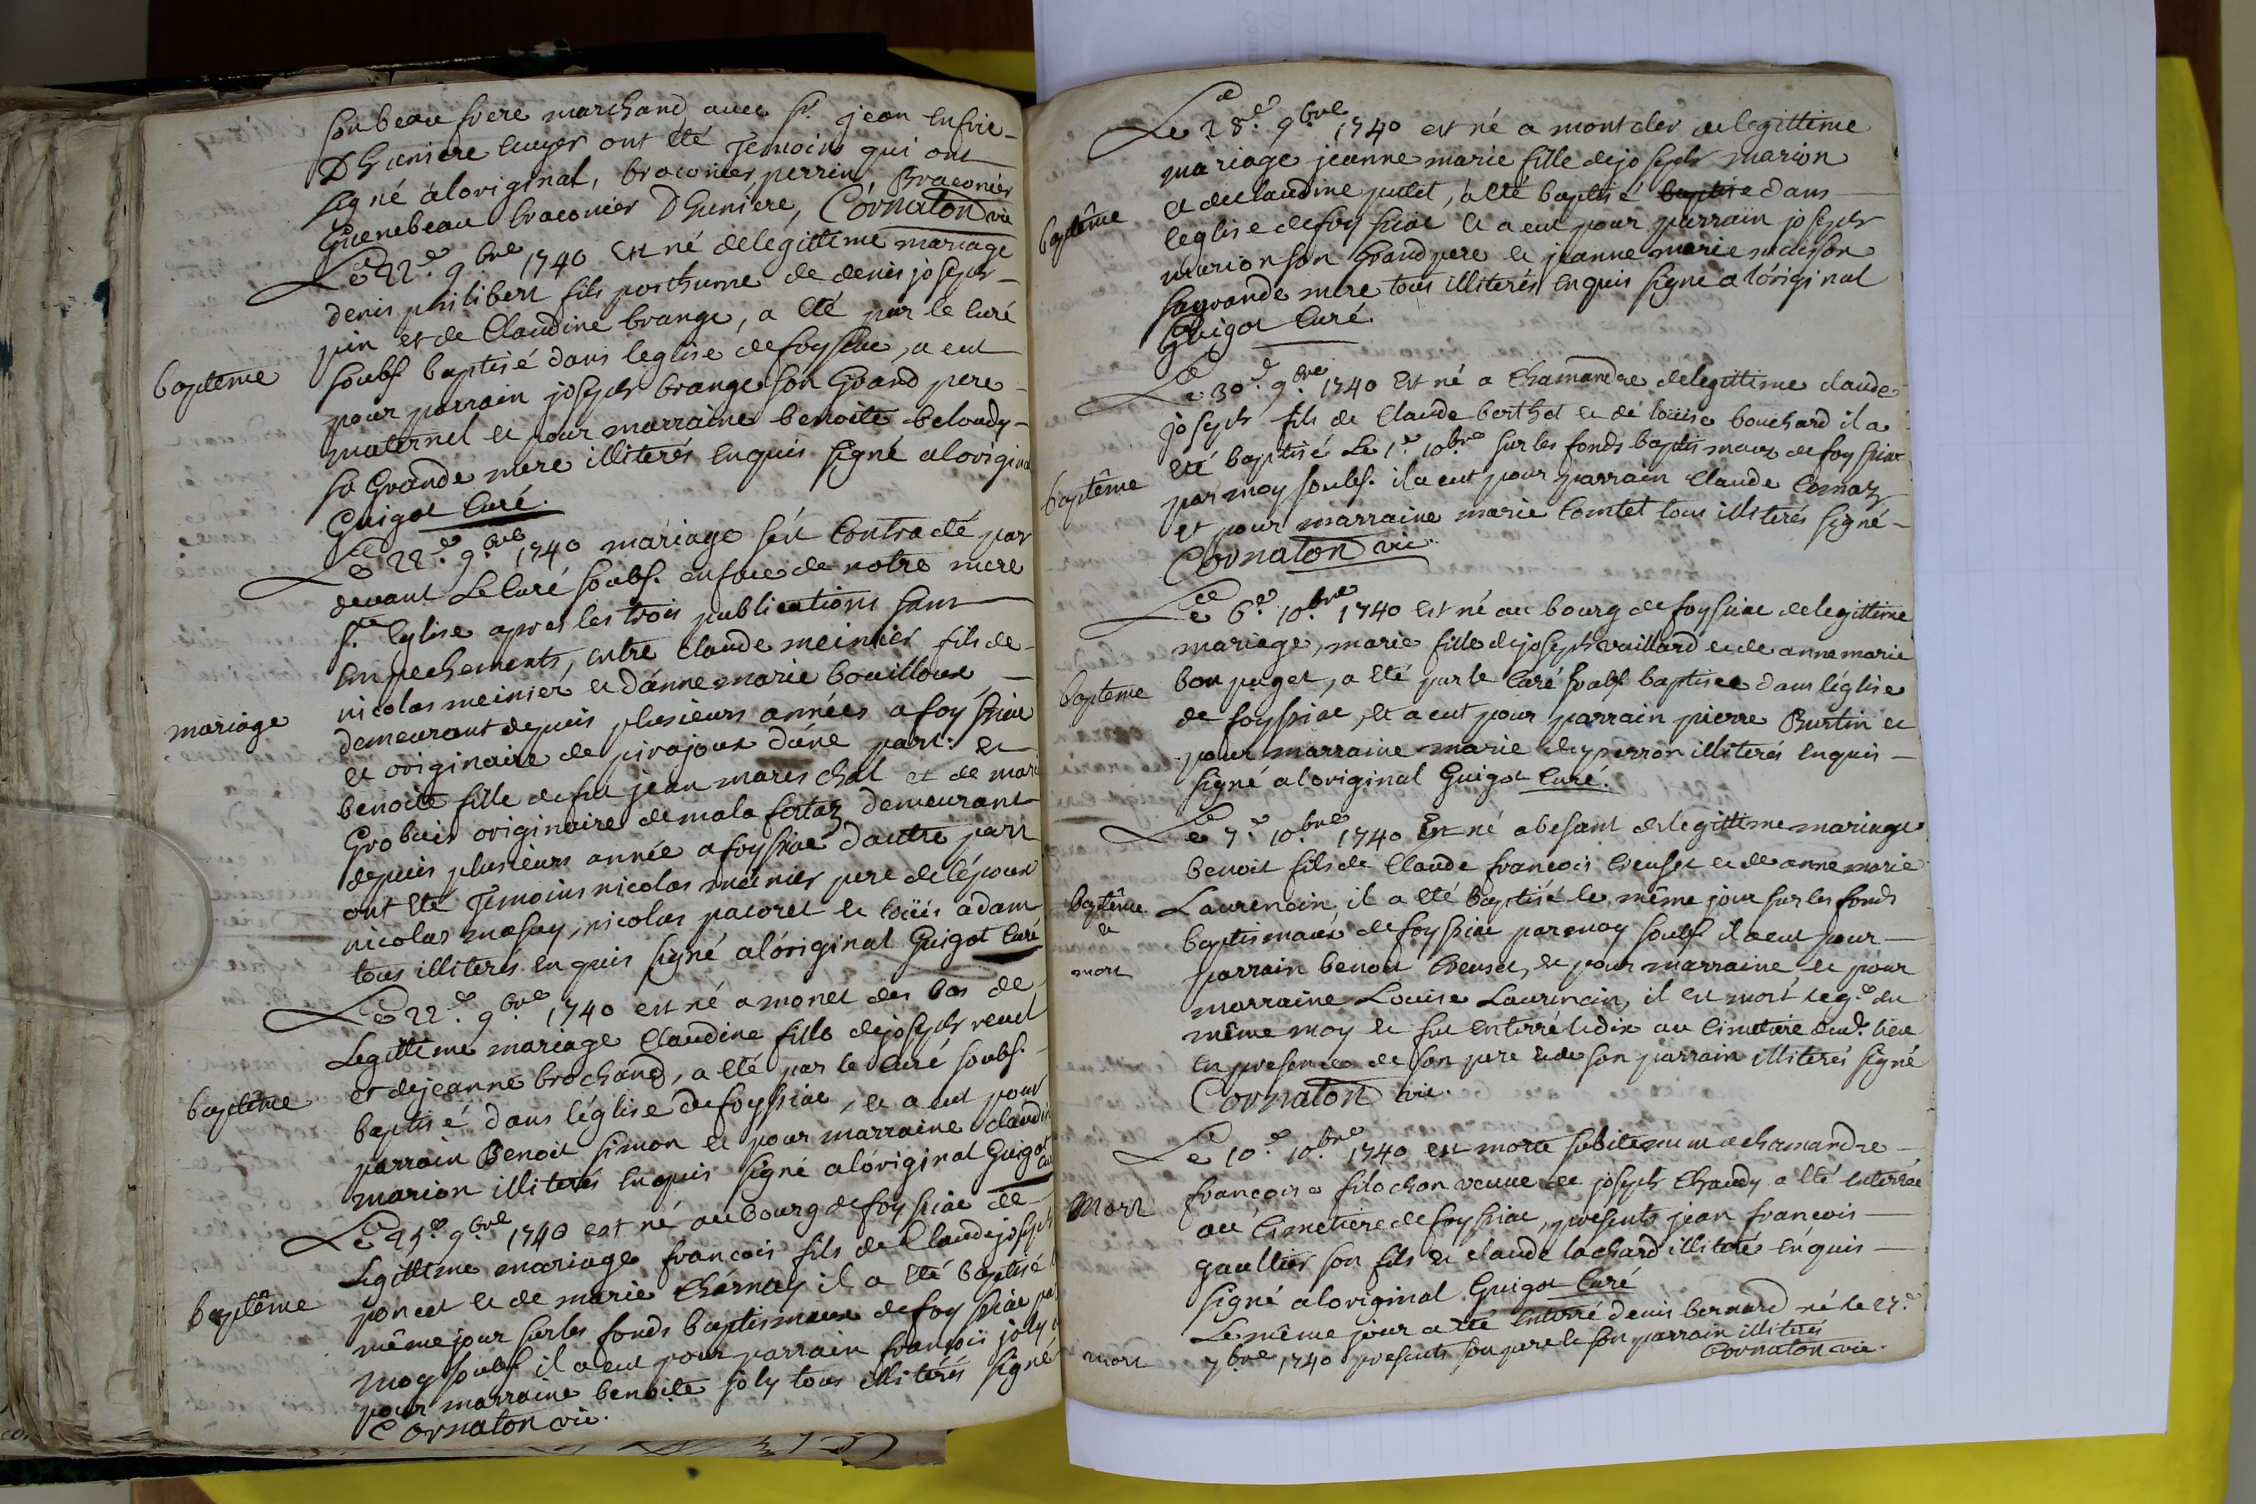 son beau frere marchand, avec Sr. jean
D'hieniere ecuyer ont été Temoins qui ont
signé a loriginal, braconier perrin, Braconier
Guenebeau braconier D'huniere, Cornaton vic
Le 22e. 9bre 1740 Est né de legittime mariage
denis philibert fils posthume de denis joseph
pin et de Claudine brange, a eté par le Curé
baptême
soubs. baptisé dans leglise de foyssiac, a eut
pour parrain joseph brange son Grand pere
maternel et pour marraine benoite beloudy
sa Grande mere illiterés Enquis signé a lorigina
Guigot Curé.
Le 22e. 9bre 1740 mariage s'est Contracté par
devant Le Curé soubs. en face de notre mere
ste. Eglise apres les trois publications sans
Empechements, entre Claude meinier fils de
nicolas meinier et d'anne marie bouilloux
mariage
demeurant depuis plusieurs années a foyssiac
et originaire de pirajoux d'une part. et
benoite fille de feu jean mareschal et de mari
Grobuis originaire de mala fertaz demeurant
depuis plusieurs année a foyssiac d'autre part
ont eté Temoins nicolas meinier pere de l'epoux
nicolas masuy, nicolas pacoret et loüis adam
tous illiteres Enquis signé a l'original Guigot Curé
Le 22e. 9bre 1740 est né a monet des bos de
Legittime mariage Claudine fille de joseph
et de jeanne brochand, a eté par le Curé soubs.
baptême
baptisé dans l'église de foyssiac, et a eut pour
parrain Benoit simon et pour marraine claudin
marion illiterés Enquis signé a l'original Guigot
Cur
Le 25e. 9bre 1740 est né au bourg de foyssiac de
Legittime mariage francois fils de Claude joseph
baptême
poncet et de marie Charnay il a eté baptisé l
même jour sur les fonds baptismaux de foyssiac pa
moy soubs il a eut pour parrain françois joly
pour marraine benoite joly tous illiterés signé
Cornaton vic.
Le 28e. 9bre 1740 est né a montcler de legittime
mariage jeanne marie fille de joseph marion
et de claudine putet, a eté baptisé baptise dans
baptême
leglise de foyssiac et a eut pour parrain joseph
marion son Grand pere et jeanne marie maison
sa grande mere tous illiterés Enquis signé a l'original
Guigot Curé.
Le 30e. 9bre 1740 Est né a Chamandre de legittime claude
joseph fils de Claude berthet et de loüise bouchard il a
Eté baptisé Le 1er 10bre sur les fonds baptismaux de foyssiac
baptême
par moy soubs. il a eut pour parrain Claude Comaz
et pour marraine marie Comtet tous illiterés signé
Cornaton vic.
Le 6e. 10bre 1740 Est né au bourg de foyssiac de legittime
mariage, marie fille de joseph vuillard et de anne marie
baptême
bon puget, a eté par le Curé soubs. baptisée dans l'église
de foyssiac, et a eut pour parrain pierre Burtin et
pour marraine marie duperron illiterés Enquis
signé a loriginal Guigot Curé.
Le 7e. 10bre 1740 Est né a besant de legittime mariage
benoit fils de Claude francois Creuset et de anne marie
baptême
et
mort
Laurencin, il a eté baptisé le même jour sur les fonds
baptismaux de foyssiac par moy soubs il a eut pour
parrain benoit Creuset, et pour marraine et pour
marraine Louise Laurencin, il est mort le 9e. du
même moy et fut Enterré le dix au Cimetiere dud. lieu
En presence de son pere et de son parrain illiterés signé
Cornaton vic.
Le 10e. 10bre 1740 est morte subitement a chamandre
françoise filochon veuve de joseph Chaudy a eté Enterrée
Mort
au Cimetiere de foyssiac, presents jean francois
gaultier son fils et claude lachard illiterés Enquis
signé a loriginal Guigot Curé
Le même jour a eté Enterré denis bernard né le 27e.
mort
7bre 1740 presents son pere et son parrain illiterés
Cornaton vic.